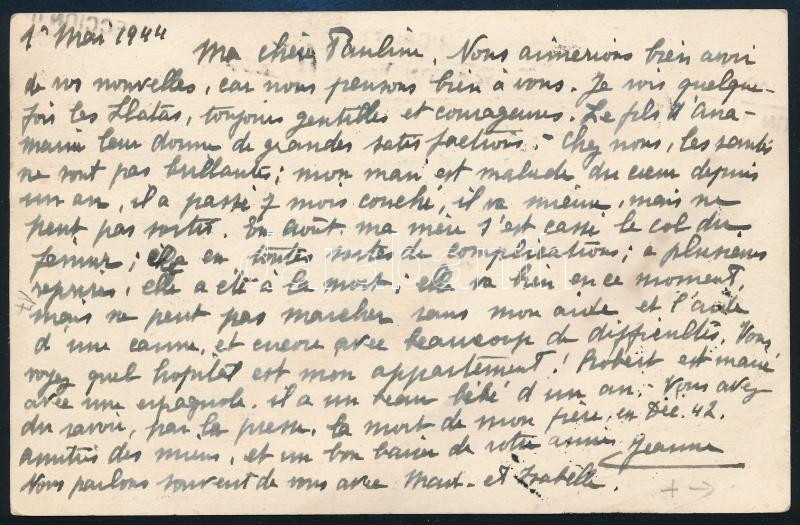 1º Mai 1944
Ma chère Pauline, Nous aimerions bien avoir
de vos nouvelles, car nous pensons bien à vous. Je vois quelque-
fois les Llatas, toujours gentilles et courageuses. Le fils d'Ana-
maria leur donne de grandes satisfactions. - Chez nous, les santés
ne sont pas brillantes; mon mari est malade du cœur depuis
un an, il a passé 7 mois couché, il va mieux, mais ne
peut pas sortir. En août ma mère s'est cassé le col du
fémur; elle a eu toutes sortes de complications; à plusieurs
reprises, elle a été à la mort; elle va bien en ce moment,
mais ne peut pas marcher sans mon aide et l'aide
d'une canne, et encore avec beaucoup de difficultés. Vous
voyez quel hôpital est mon appartement! Robert est marié
avec une espagnole. il a un beau bébé d'un an. - Vous avez
du savoir, par la presse, la mort de mon frère, en Déc. 42.
amitiés des miens, et un bon baiser de votre amie Jeanne
Nous parlons souvent de vous avec et Isabelle.